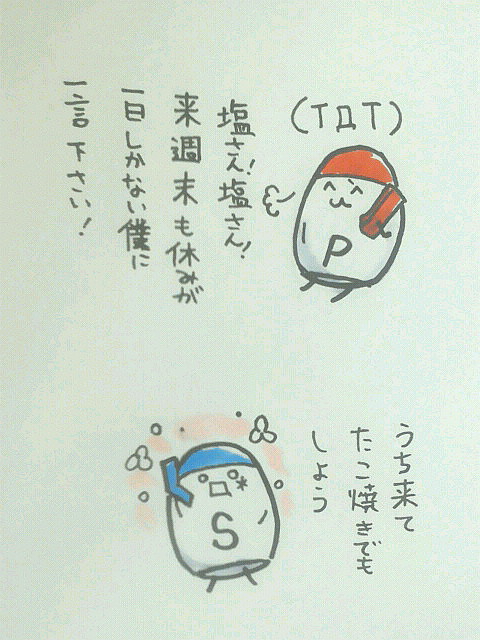 (TДT)
塩さん!塩さん!
来週末も休みが
一日しかない僕に
一言下さい!
P
うち来て
たこ焼きでも
しよう
S